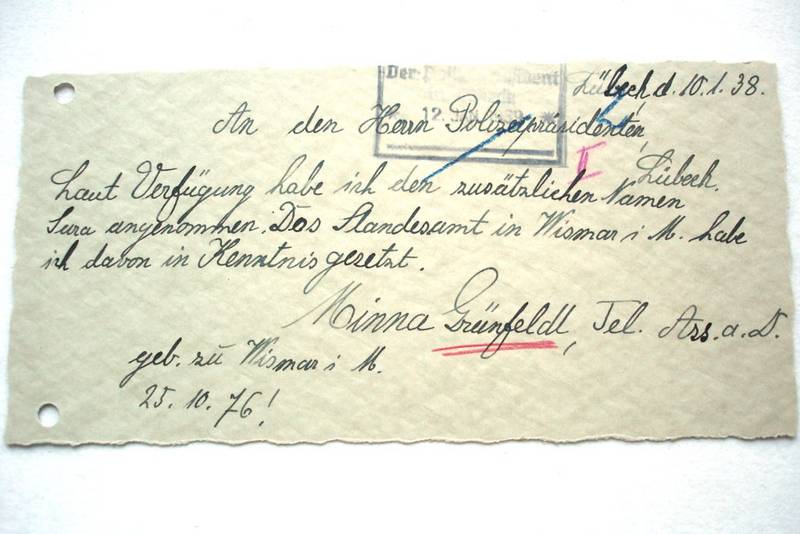 Lübeck, d. 10.1.38.
Der Polizeipräsident
12.
An den Herrn Polizeipräsidenten,
Lübeck.
Laut Verfügung habe ich den zusätzlichen Namen
Sara angenommen. Das Standesamt in Wismar i M. habe
ich davon in Kenntnis gesetzt.
Minna Grünfeldt, Tel. Ass. a. D.
geb. zu Wismar i M.
25. 10. 76!